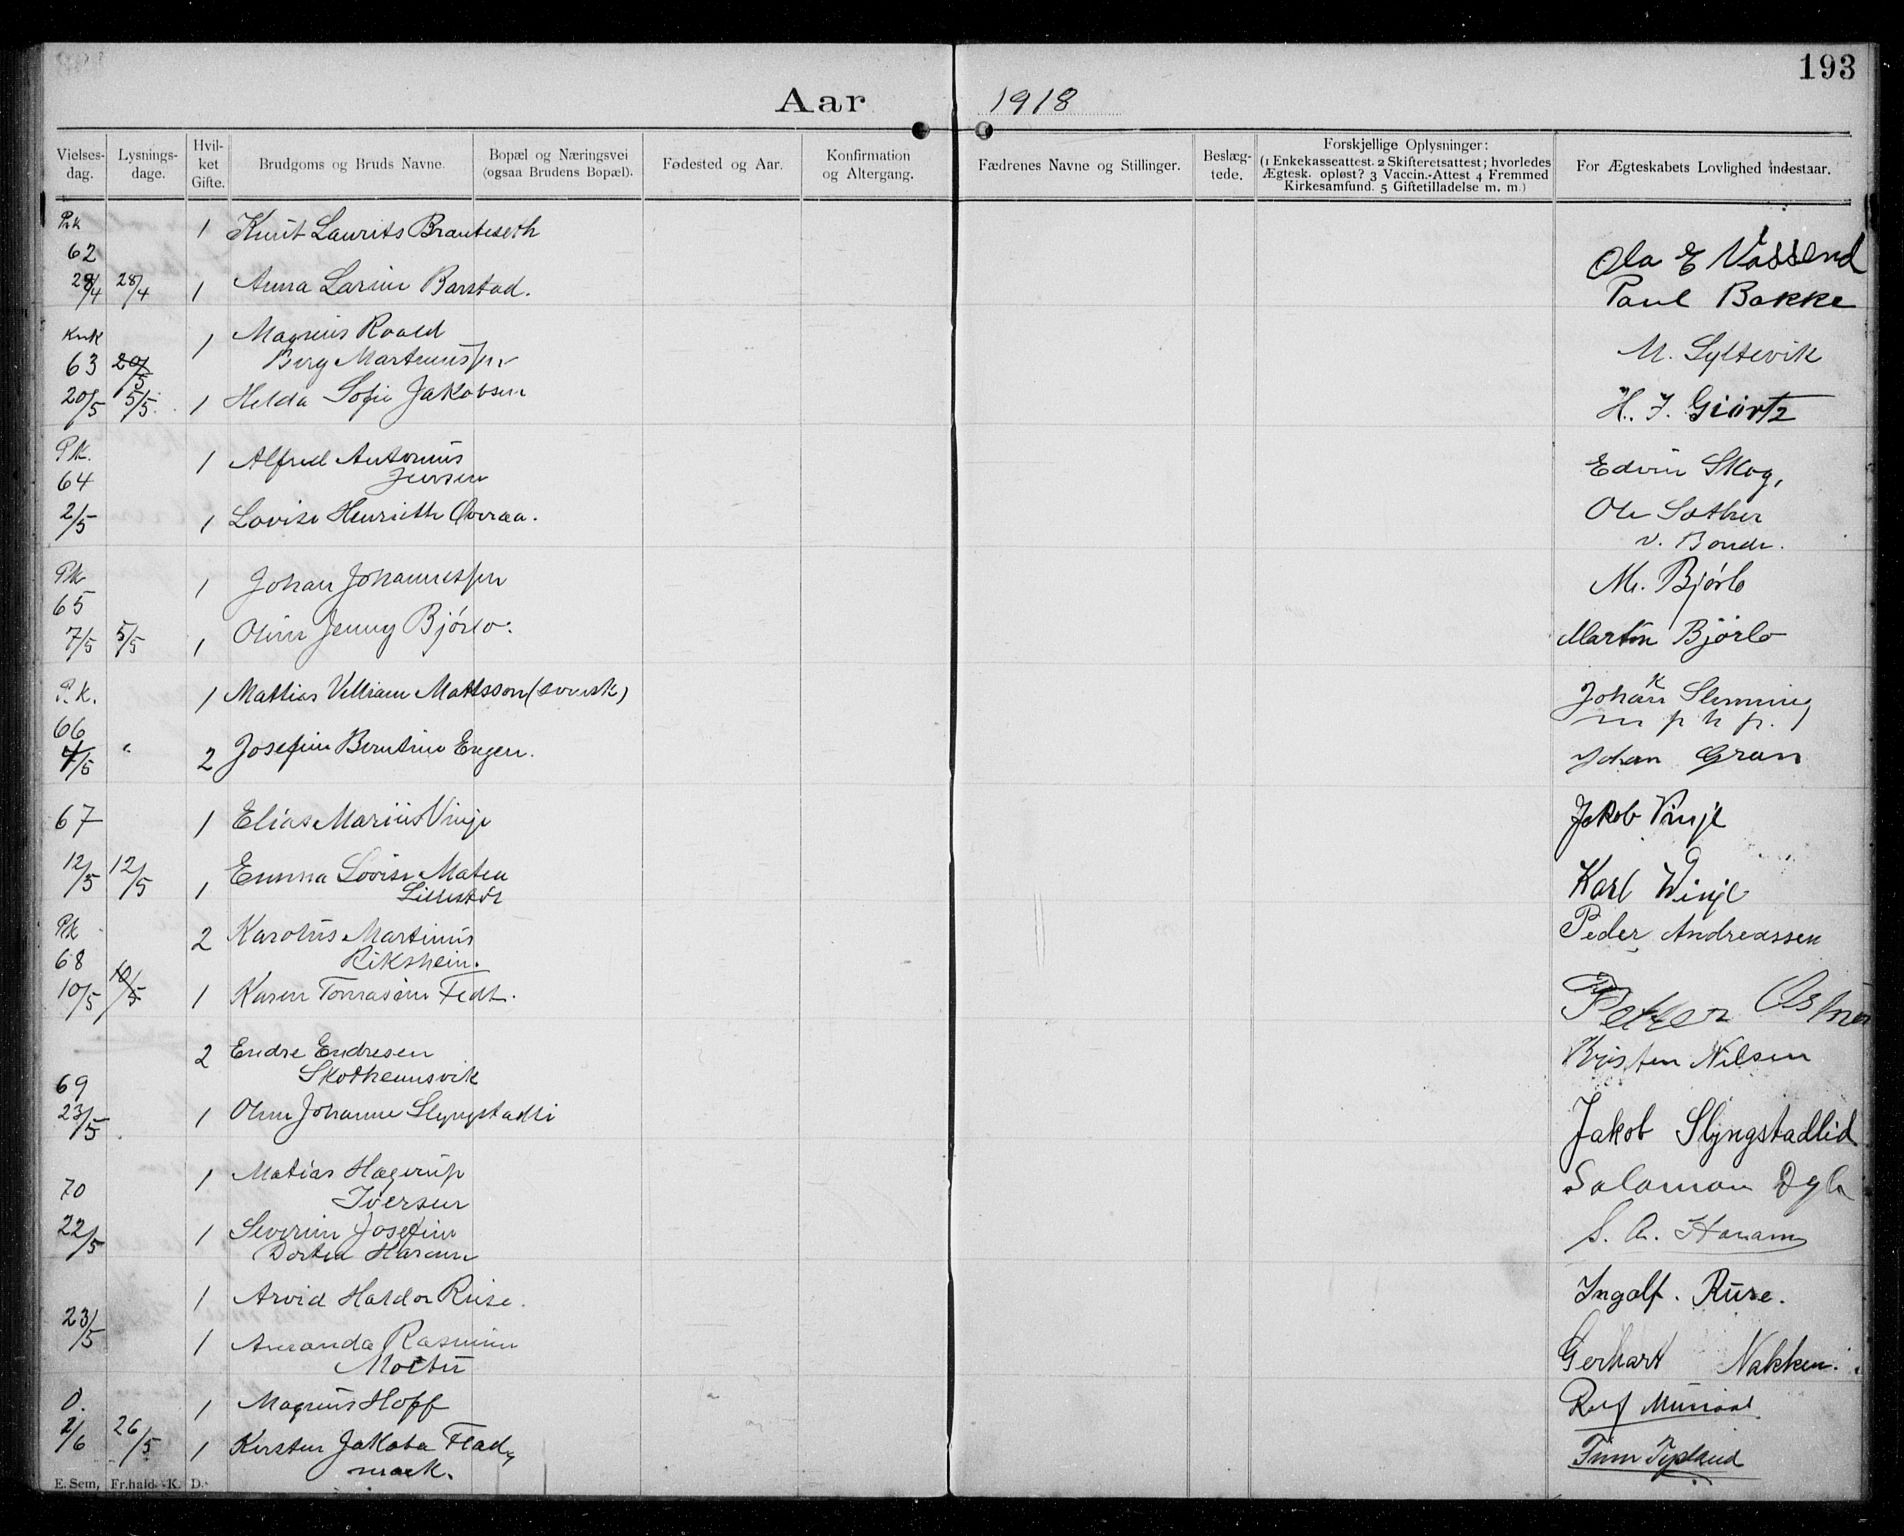 193
Aar 1918
Vielses-dag. Lysnings-dage. Hvil-ket Gifte. Brudgoms og Bruds Navne. Bopæl og Næringsvei (ogsaa Brudens Bopæl). Fødested og Aar. Konfirmation og Altergang. Fædrenes Navne og Stillinger. Beslæg-tede. Forskjellige Oplysninger: (1 Enkekasseattest. 2 Skifteretsattest; hvorledes Ægtesk. opløst? 3 Vaccin.-Attest 4 Fremmed Kirkesamfund. 5 Giftetilladelse m. m.) For Ægteskabets Lovlighed indestaar.
1 Knut Laurits
62 Ola E Vassend
28/4 28/4 1 Anna Barstad.
Paul Bakke
1 Magnus Roald
63 20/5 Berg Martinussen
M. Syltevik
20/5 5/5. 1 Helda Sofie Jakobsen
H. J. Giørtz
P.k. 1 Alfred Antonius
64 Jensen
Edvin Skog,
2/5 1 Lovise Henriette Overaa.
Ole Sæther
v. Bonde.
1 Johan Johannessen
65 M. Bjørlo
7/5 5/5 1 Oline Jenny Bjørlo.
Martin Bjørlo
P.k. 1 Mattias Villiam Mattsson (svensk)
Johan Slemming
66
4/5 " 2 Josefine Berntine Engen.
Johan Gran
67 1 Elias Marius Vinje
Jakob Vinje
12/5 12/5 1 Emma Lovise Matea
Karl Winje
2 Karolus Martinus
Peder Andreassen
68 Rikshein.
10/5 10/5 1 Karen Tomasine Fedt.
Petter
2 Endre Endresen
Kristen Nilsen
69
23/5 1 Oline Johanne Slyngstadli
Jakob Slyngstadlid
1 Matias Hagerup
70 Iversen
Salamon
22/5 1 Severine Josefine
Dortea Haram
S. A. Haram
1 Arvid Haldor Ruse.
Ingolf. Ruse.
23/5 1 Amanda Rasmine
Gerhart Nakken.
1 Magnus Hoff
2/6 26/5 1 Kirsten Jakoba Flad-
mark.
E. Sem, Fr.hald.-K. D.